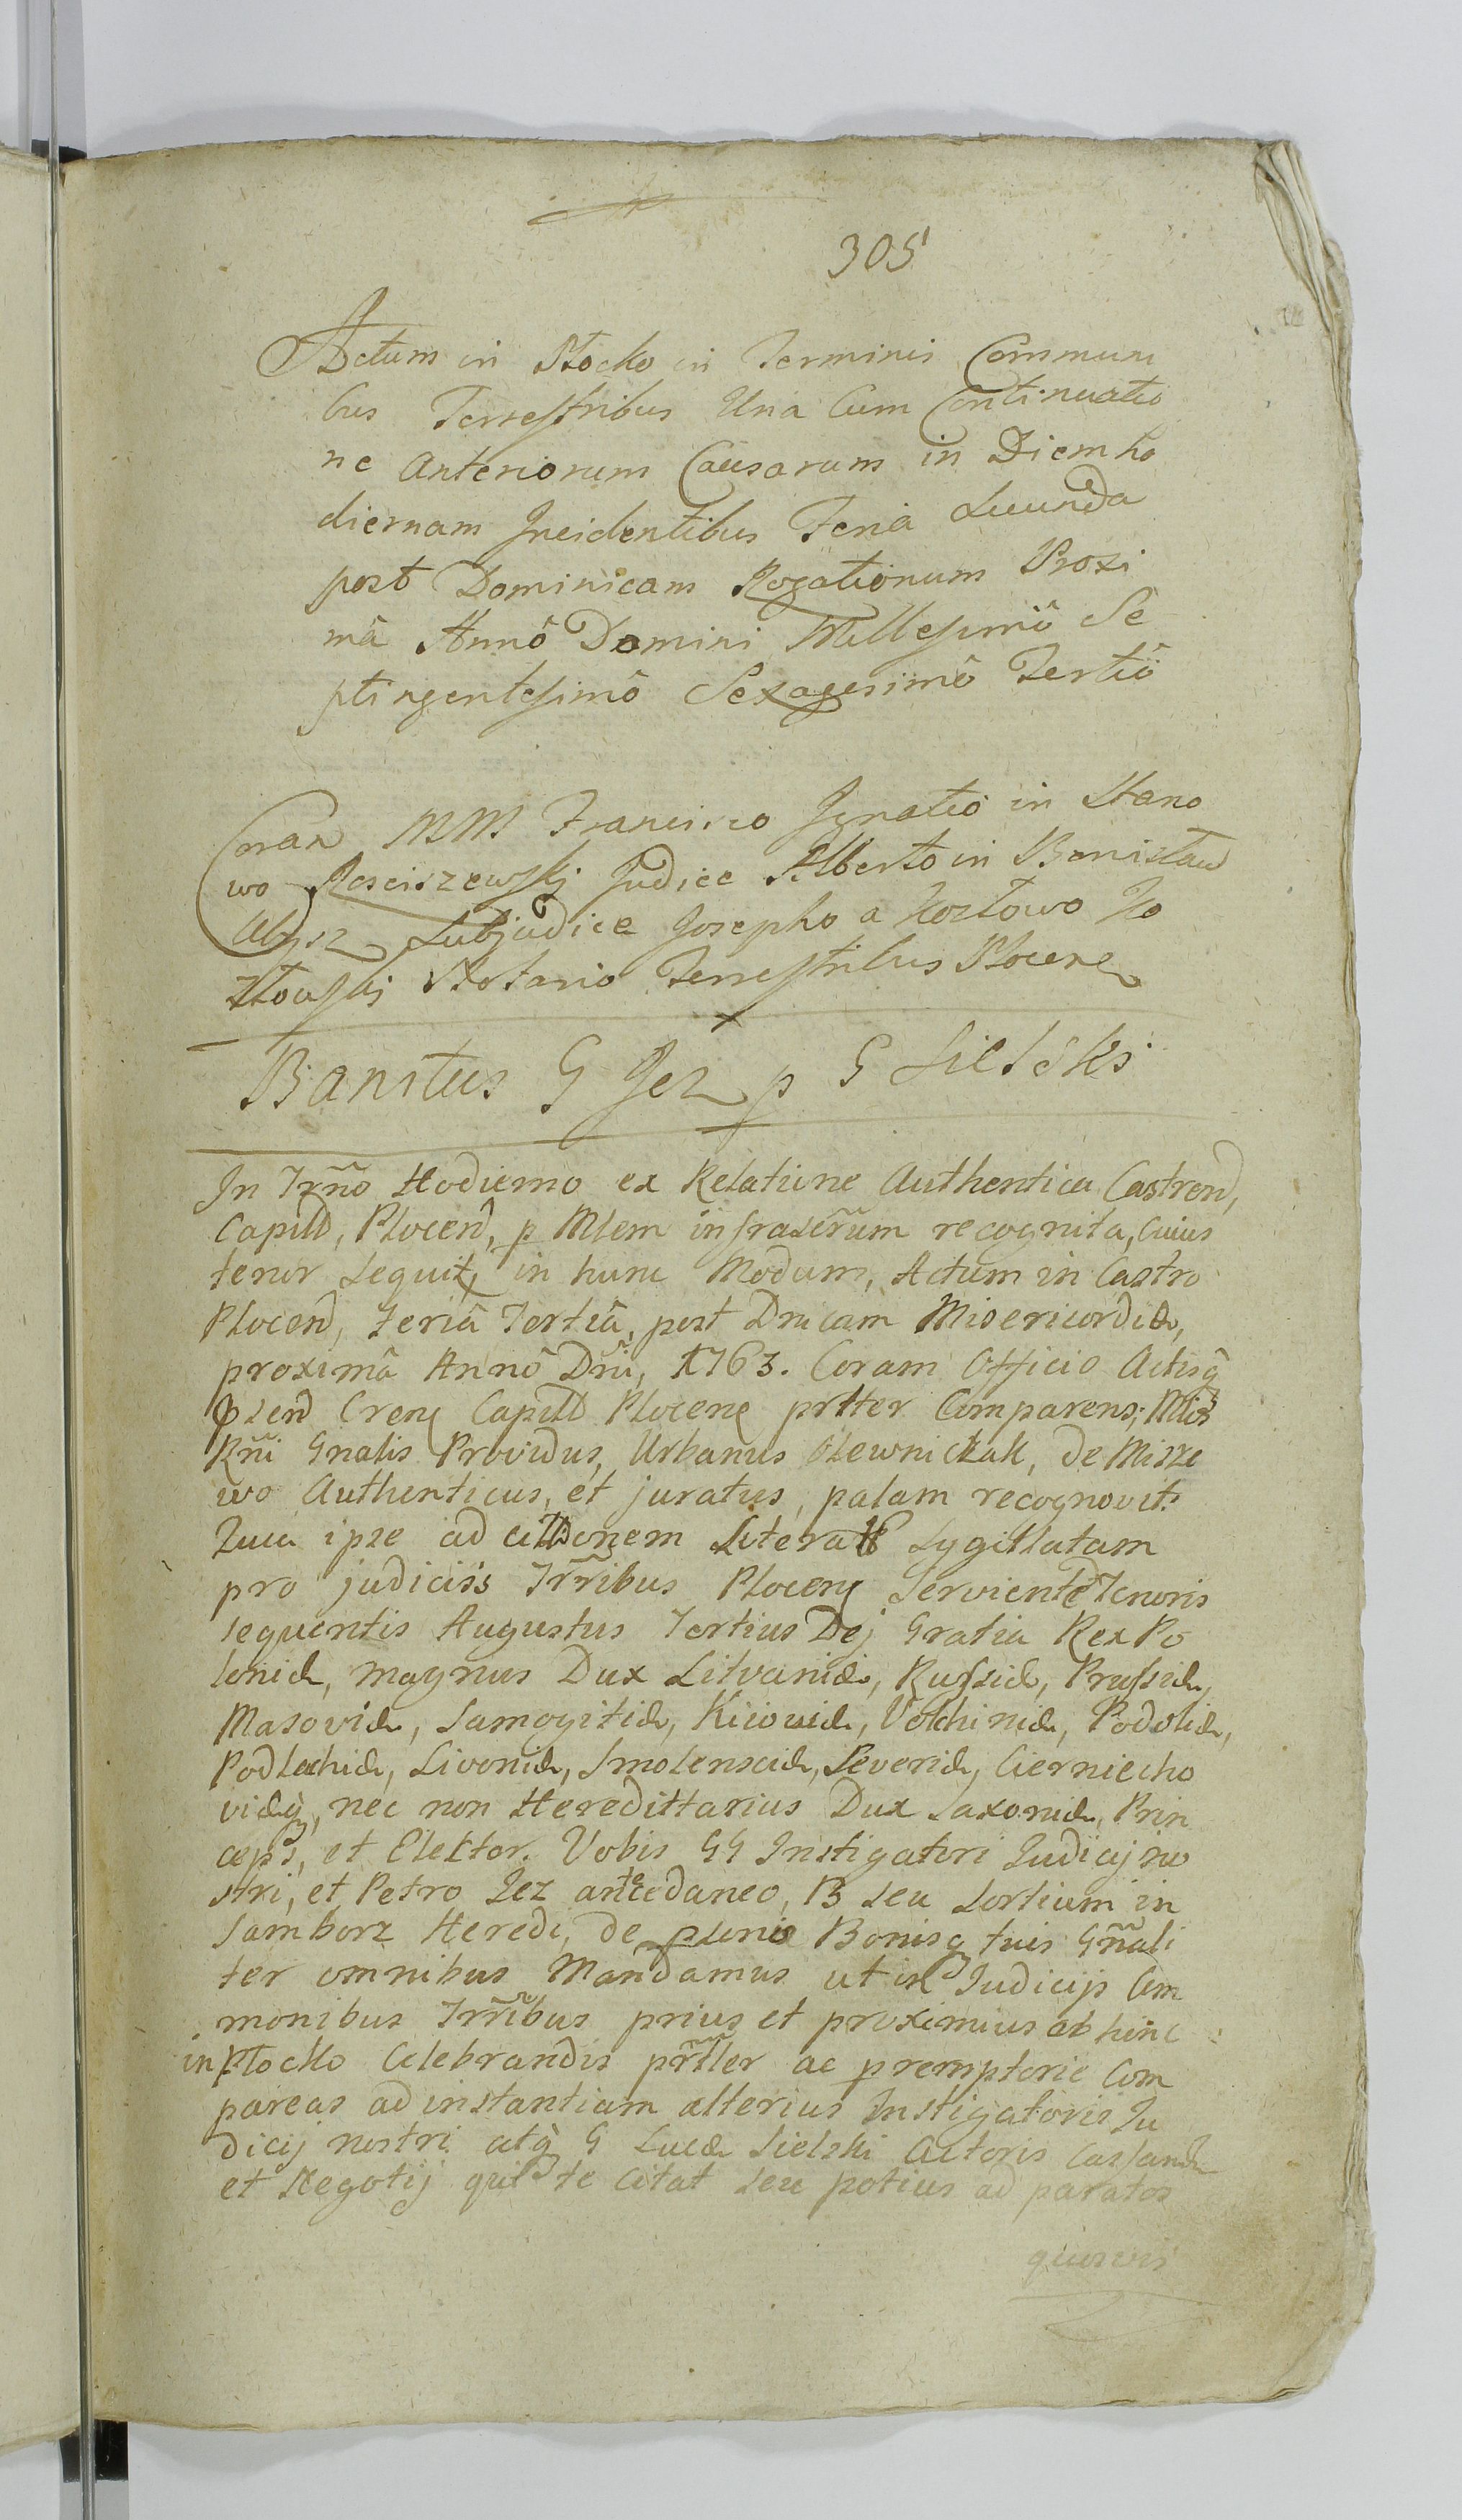 305
Actum in Plocko in Terminis Commun
bus Terrestribus Una Cum Continuatio
ne Anteriorum Causarum in Diem ho
diernam Incidentibus Feria Secunda
post Dominicam Rogationum Proxi
mâ Annô Domini Millesimô Se
ptingentesimô Sexagesimô Tertiô
Coram MM Francisco Ignatio in Stano
wo Rosciszewskj Judice Alberto in Bonislaw
Mysz Subjudice Josepho a Kozlowo Ko
zlowskj Notario Terrestribus Plocen
Banitus G Jez p G Sielski
In Trño Hodierno ex Relatione Authentica Castren,
Capitl, Plocen, p Mlem infrascrũm recognita, cuius
tenor sequit in hunc Modum, Actum in Castro
Plocen, feriâ Tertiâ, post Dnicam Misericordiæ,
proximâ Annô Dñi, 1763. Coram Officio Actisq̃
Pñen Cren Capitl Plocen prltter Comparens, Mlis
Rñi Gnalis Providus, Urbanus Olewniczak, de Misze
wo Authenticus, et juratus, palam recognovit.
Quia ipse ad Littera Sygillatam
pro judiciis Trribus Plocen Serviente Tenoris
sequentis Augustus Tertius Dej Gratia Rex Po
loniæ, magnus Dux Litvaniæ, Russiæ, Prussiæ,
Masoviæ, Samogitiæ, Kiioviæ, Volhiniæ, Podoliæ,
Podlachiæ, Livoniæ, Smolensciæ, Severiæ, Cierniecho
viæq̃, nec non Heredittarius Dux Saxoniæ, Prin
ceps, et Elektor. Vobis GG Instigatori Judicij no
stri, et Petro Jez antecedaneo, B seu Sortium in
Samborz Heredi, de Bonisq tuis Gñali
ter omnibus Mandamus ut in Judicijs Com
monibus Trribus prius et proximius ab hinc
in Plocko Celebrandis prltter ac premptorie Com
pareas ad instantiam alterius Instigatoris Ju
dicij nostri atq̃ G Lucæ Sielski Actoris Causandæ
et Negotij qui te Citat seu potius ad paratos
quosvis